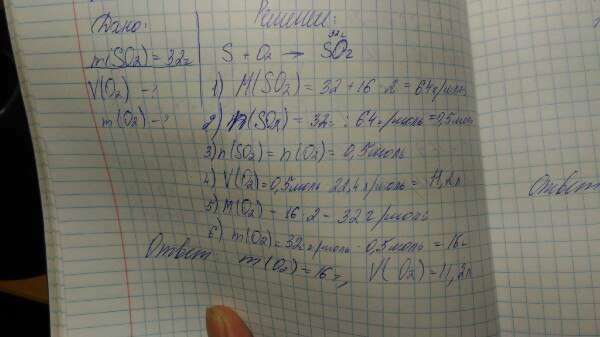 Дано:
m(SO2) = 32г
V(O2) - ?
m(O2) - ?
Решение:
32г
S + O2 → SO2
1) M(SO2) = 32 + 16 · 2 = 64 г/моль
2) n(SO2) = 32г : 64 г/моль = 0,5 моль
3) n(SO2) = n(O2) = 0,5 моль
4) V(O2) = 0,5 моль · 22,4 г/моль = 11,2 л
5) M(O2) = 16 · 2 = 32 г/моль
6) m(O2) = 32 г/моль · 0,5 моль = 16г
Ответ m(O2) = 16г, V(O2) = 11,2л
Ответ